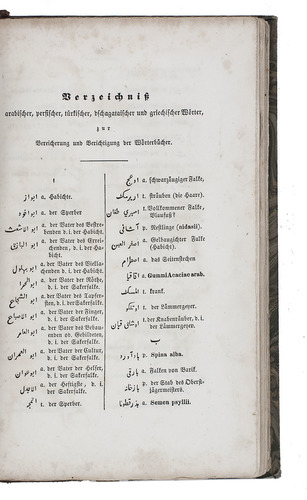 Verzeichniß
arabischer, persischer, türkischer, dschagataischer und griechischer Wörter,
zur
Bereicherung und Berichtigung der Wörterbücher.
ا
ابواز a. Habichte.
ابو الاخود a. der Sperber
ابو الاشعث a. der Vater des Bestre-
benden d. i. der Habicht.
a. der Vater des Erreichenden, d. i. der
Habicht.
ابو بهلول a. der Vater des Viellachenden d. i. der Habicht.
ابو الحمرا a. der Vater der Röthe,
d. i. der Sakerfalke.
ابو الشجاع a. der Vater des Tapfersten, d. i. der Sakerfalke.
ابو الاصباع a. der Vater der Finger,
d. i. der Sakerfalke.
ابو العامر a. der Vater des Bebauenden od. Gebildeten,
d. i. der Sakerfalke.
ابو العمران a. der Vater der Cultur,
d. i. der Sakerfalke.
ابو عوان a. der Vater der Helfer,
d. i. der Sakerfalke.
الاجدل a. der Heftigste, d. i.
der Sakerfalke.
t. der Sperber.
a. schwarzäugiger Falke,
اورپرمك t. sträuben (die Haare).
t. Vollkommener Falke,
Blaufuß?
آشیانی p. Nestlinge (nidaoli).
اصفر العین a. Gelbaugichter Falke
(Habicht).
اصطرام a. das Seitenstechen
اقاقیا t. Gummi Acaciae arab.
t. krank.
t. der Lämmergeyer.
t. der Knabenräuber, d. i.
der Lämmergeyer.
ب
باد آورد p. Spina alba.
بارقی a. Falken von Barik.
بازخانه p. der Stab des Oberst-
jägermeisters.
بذر قطونا a. Semen psyllii.